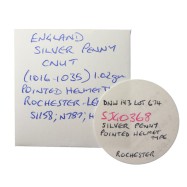 ENGLAND
SILVER PENNY
CNUT
(1016-1035) 1.02gm
POINTED HELMET
ROCHESTER
S1158; N787;
DNW 143 LOT 674
SX0368
SILVER PENNY
POINTED HELMET
TYPE
ROCHESTER